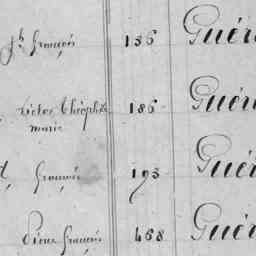 Jh françois 136 Guér
Victor Théophile 186 Guér
marie
françois 193 Guér
Pierre françois 468 Guér